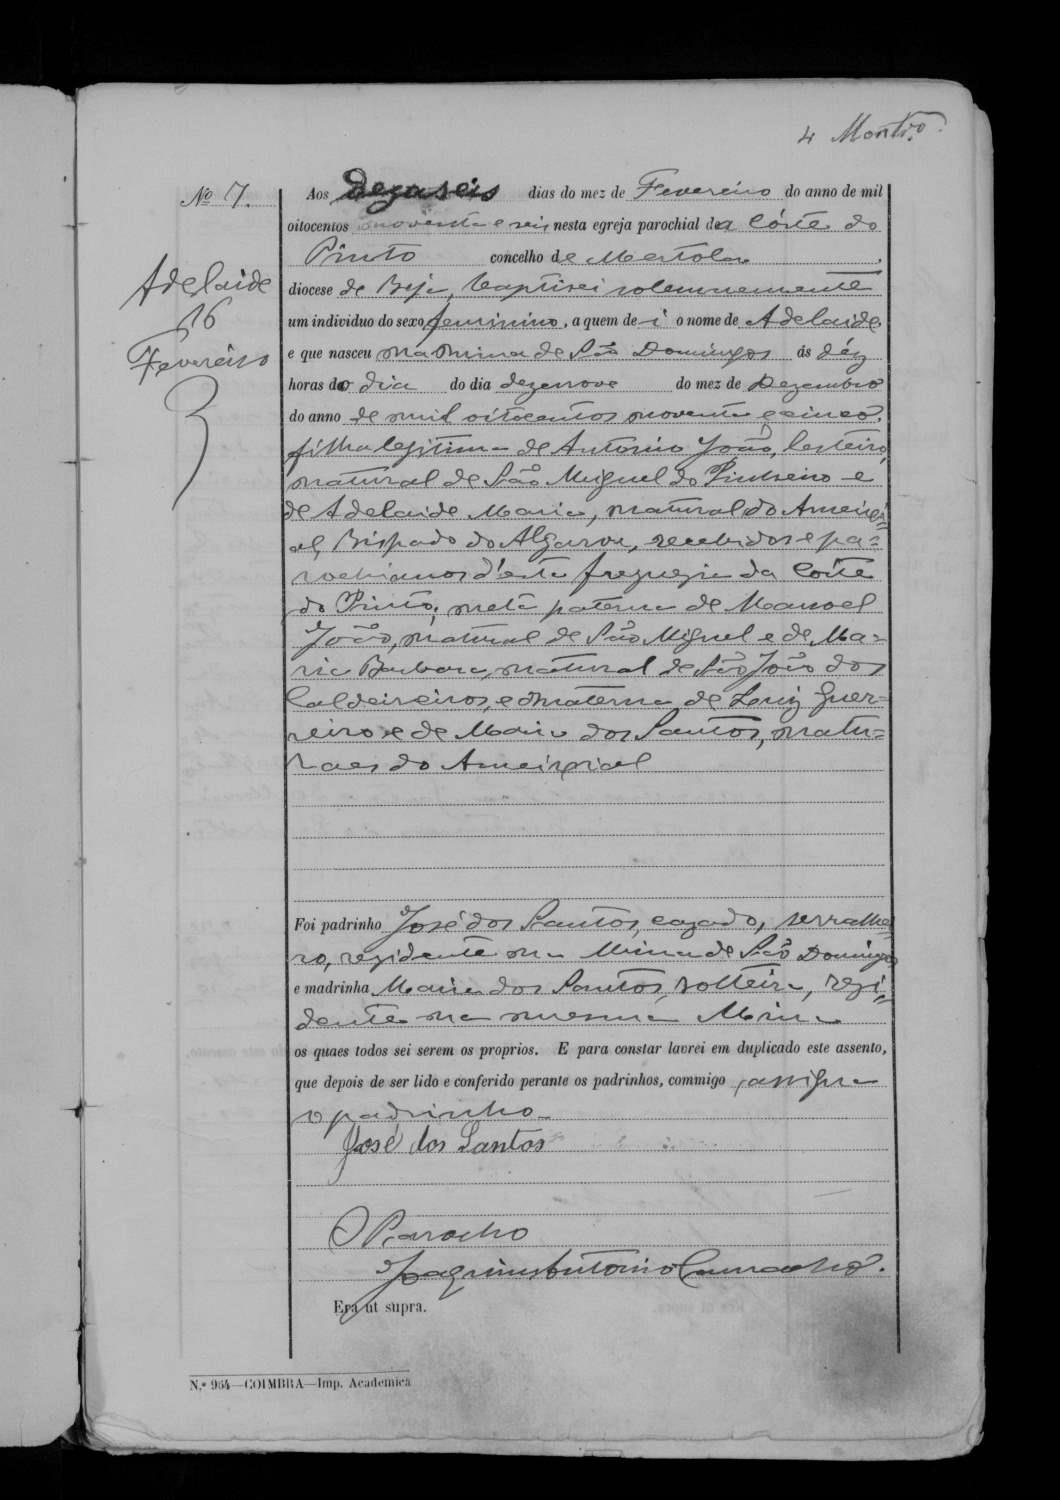 4 Montrº
Nº 7.
Aos dezaseis dias do mez de Fevereiro do anno de mil
oitocentos noventa e seis, nesta egreja parochial da Côrte do
Pinto concelho de Mertola
Adelaide
16
Fevereiro
diocese de Beja, baptisei solemnemente
um individuo do sexo feminino, a quem dei o nome de Adelaide,
e que nasceu na Mina de São Domingos ás déz
horas do dia do dia dezenove do mez de Dezembro
do anno de mil oitocentos noventa e cinco,
filha legitima de Antonio João, cesteiro,
natural de São Miguel do Pinheiro e
de Adelaide Maria, natural do Ameixi=
al, Bispado do Algarve, recebidos e pa=
rochianos d'esta freguezia da Côrte
do Pinto; neta paterna de Manoel
João, natural de São Miguel e de Ma=
ria Barbara, natural de São João dos
Caldeireiros, e materna de Luiz Guer=
reiro e de Maria dos Santos, natu=
raes do Ameixial
Foi padrinho José dos Santos, cazado, serralhei
ro, rezidente na Mina de São Domingos
e madrinha Maria dos Santos, solteira, rezi=
dente na mesma Mina
os quaes todos sei serem os proprios. E para constar lavrei em duplicado este assento,
que depois de ser lido e conferido perante os padrinhos, commigo assigna
o padrinho
José dos Santos
O Parocho
Joaquim Antonio
Era ut supra.
N.º 964—COIMBRA—Imp. Academica